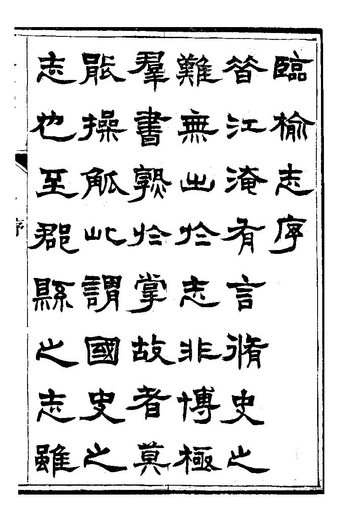 臨榆志序
昝江淹有言脩史之
難無出於志非博極
羣書熟於掌故者莫
能操觚此謂國史之
志也至郡縣之志雖
序